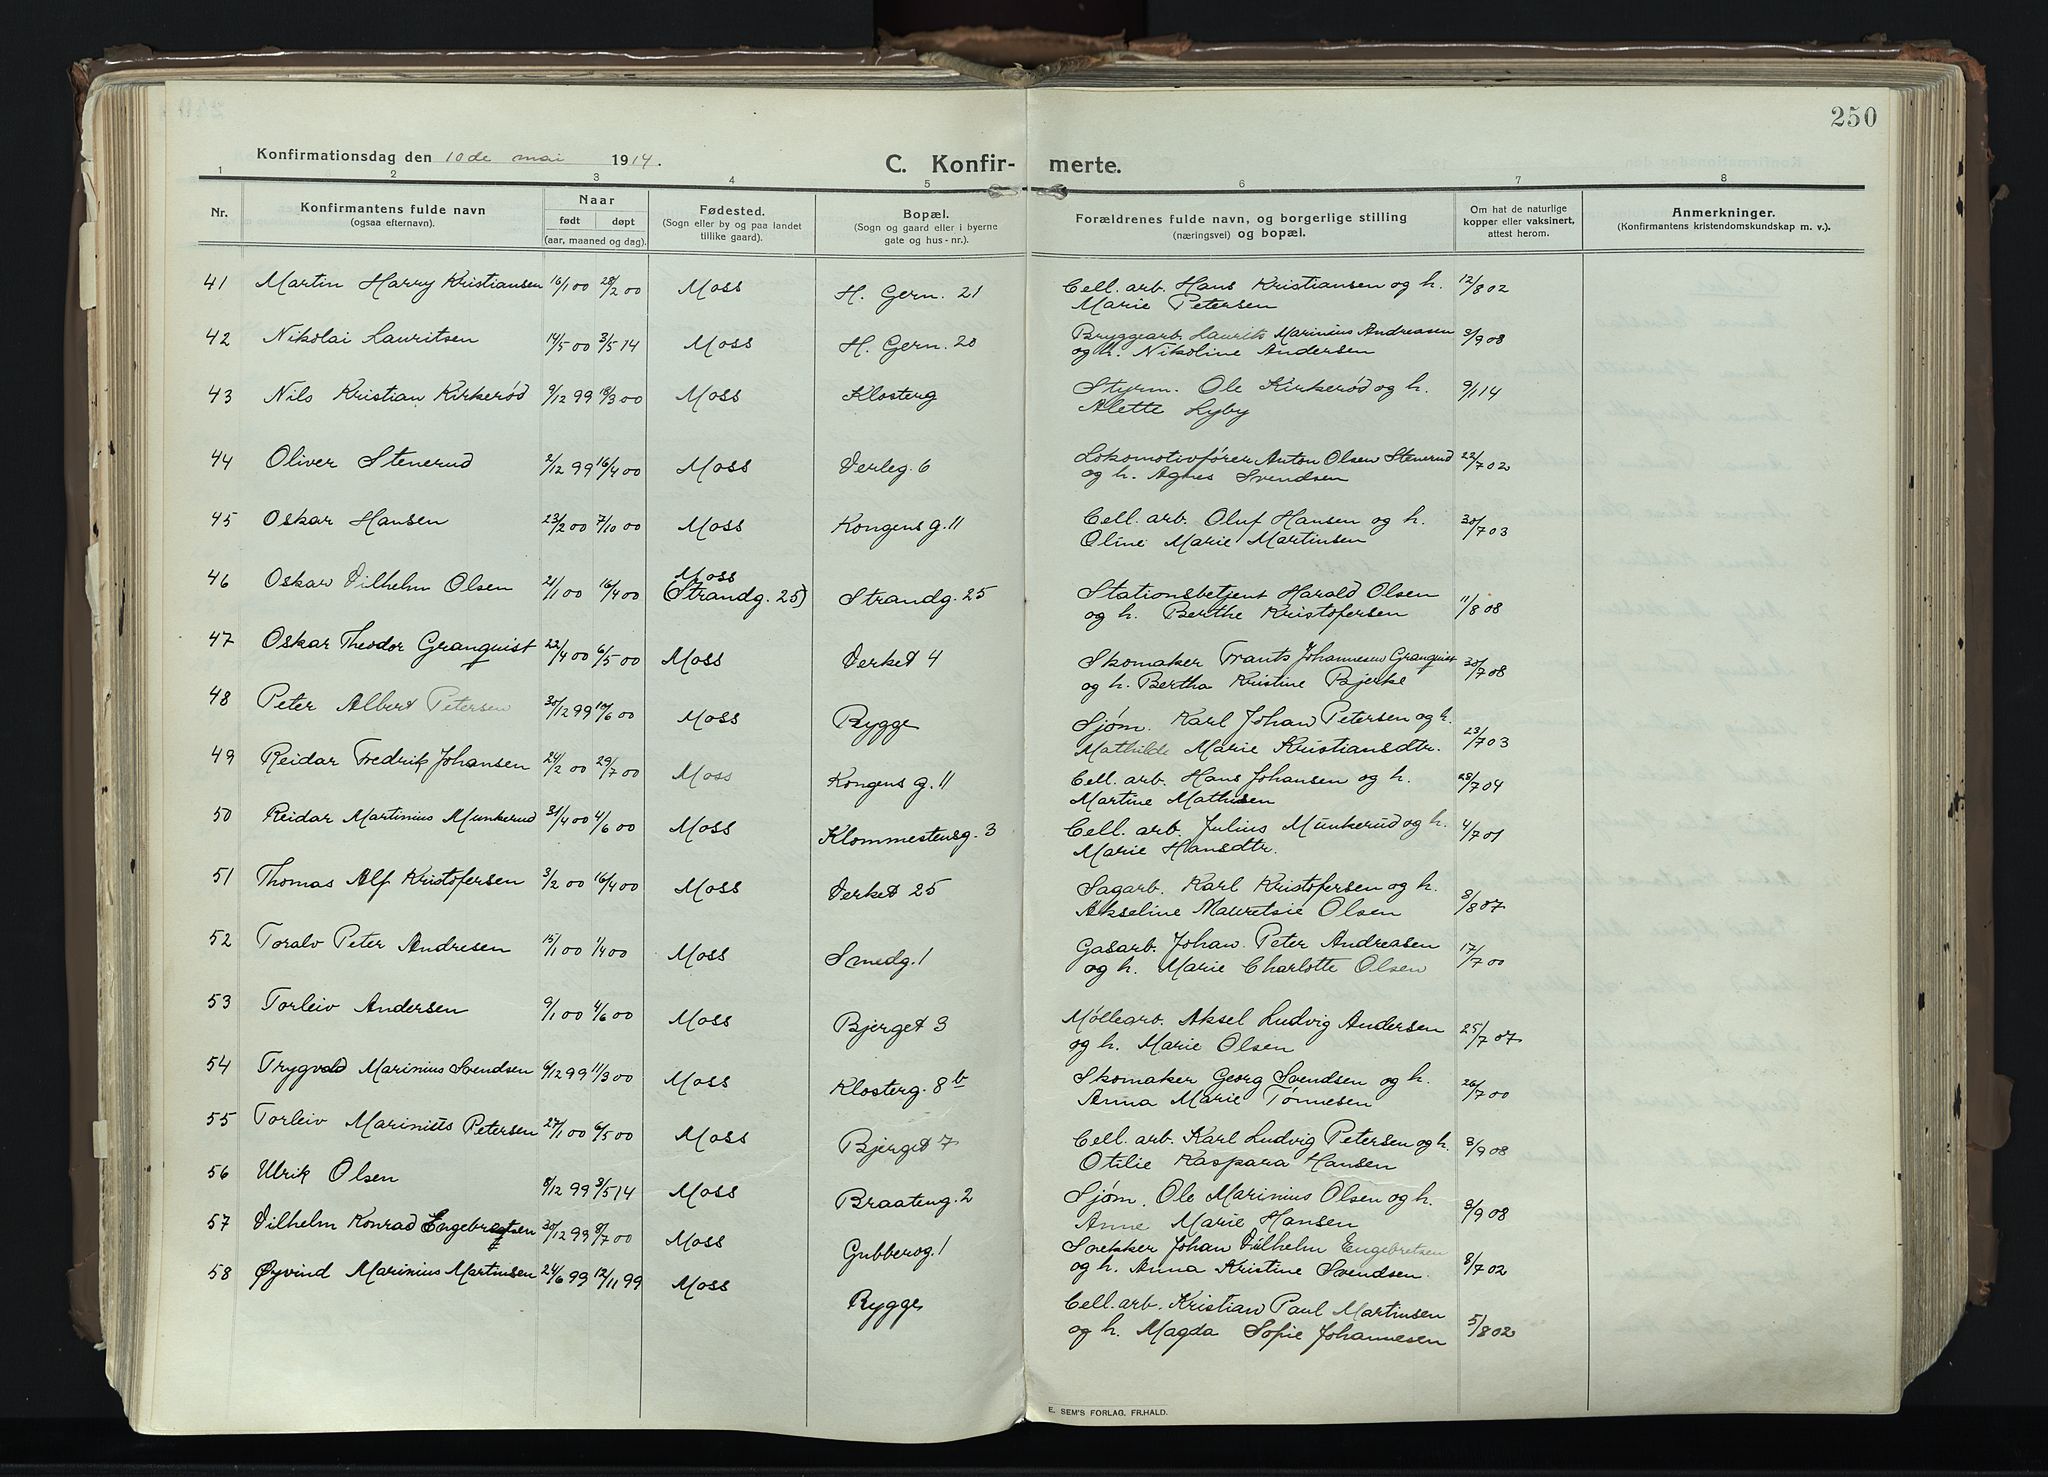 250
Konfirmationsdag den 10de mai 1914.
C. Konfir- merte.
1 2 3 4 5 6 7 8
Nr.
Konfirmantens fulde navn
(ogsaa efternavn).
Naar
født døpt
(aar, maaned og dag).
Fødested.
(Sogn eller by og paa landet
tillike gaard).
Bopæl.
(Sogn og gaard eller i byerne
gate og hus-nr.).
Forældrenes fulde navn, og borgerlige stilling
(næringsvei) og bopæl.
Om hat de naturlige
kopper eller vaksinert,
attest herom.
Anmerkninger.
(Konfirmantens kristendomskundskap m. v.).
41 Martin Harry Kristiansen 16/1 00 28/2 00 Moss H. Gern. 21 Cell. arb. Hans Kristiansen og h. 12/8 02
Marie Petersen
42 Nikolai Lauritsen 14/5 00 3/5 14 Moss H. Gern. 20 Bryggearb. Laurits Marinius Andreasen 3/9 08
og h. Nikoline Andersen
43 Nils Kristian Kirkerød 9/12 99 18/3 00 Moss Klosterg Styrm. Ole Kirkerød og h. 9/1 14
Alette Lyby
44 Oliver Stenerud 2/12 99 16/4 00 Moss Verleg. 6 Lokomotivfører Anton Olsen Stenerud 22/7 02
og h. Agnes Svendsen
45 Oskar Hansen 23/2 00 7/10 00 Moss Kongens g. 11 Cell. arb. Oluf Hansen og h. 30/7 03
Oline Marie Martinsen
46 Oskar Vilhelm Olsen 21/1 00 16/4 00 Moss
(Strandg. 25) Strandg. 25 Stationsbetjent Harald Olsen 11/8 08
og h. Berthe Kristofersen
47 Oskar Theodor Granquist 22/4 00 6/5 00 Moss Verket 4 Skomaker Frants Johannesen Granquist 30/7 08
og h. Bertha Kristine Bjerke
48 Peter Albert Petersen 30/12 99 10/6 00 Moss Rygge Sjøm. Karl Johan Petersen og h. 23/7 03
Mathilde Marie Kristiansdtr.
49 Reidar Fredrik Johansen 24/2 00 29/7 00 Moss Kongens g. 11 Cell. arb. Hans Johansen og h. 28/7 04
Martine Mathisen
50 Reidar Martinius Munkerud 31/4 00 4/6 00 Moss Klommestensg. 3 Cell. arb. Julius Munkerud og h. 4/7 01
Marie Hansdtr.
51 Thomas Alf Kristofersen 3/2 00 16/4 00 Moss Verket 25 Sagarb. Karl Kristofersen og h. 3/8 07
Akseline Mauretsie Olsen
52 Toralv Peter Andresen 15/1 00 1/4 00 Moss Smedg. 1 Gasarb. Johan Peter Andreasen 17/7 00
og h. Marie Charlotte Olsen
53 Torleiv Andersen 9/1 00 4/6 00 Moss Bjerget 3 Møllearb. Aksel Ludvig Andersen 25/7 07
og h. Marie Olsen
54 Trygvald Marinius Svendsen 6/12 99 11/3 00 Moss Klosterg. 8b Skomaker Georg Svendsen og h. 26/7 00
Anna Marie Tønnesen
55 Torleiv Marinius Petersen 27/1 00 6/5 00 Moss Bjerget 7 Cell. arb. Karl Ludvig Petersen og h. 3/9 08
Otilie Kaspara Hansen
56 Ulrik Olsen 8/12 99 3/5 14 Moss Braateng. 2 Sjøm. Ole Marinius Olsen og h. 3/9 08
Anne Marie Hansen
57 Vilhelm Konrad Engebretsen 30/12 99 8/7 00 Moss Gubberog 1 Snekker Johan Vilhelm Engebretsen 8/7 02
og h. Anna Kristine Svendsen.
58 Øyvind Marinius Martinsen 24/6 99 12/11 99 Moss Rygge Cell. arb. Kristian Paul Martinsen 5/8 02
og h. Magda Sofie Johannesen
E. SEM'S FORLAG, FR.HALD.